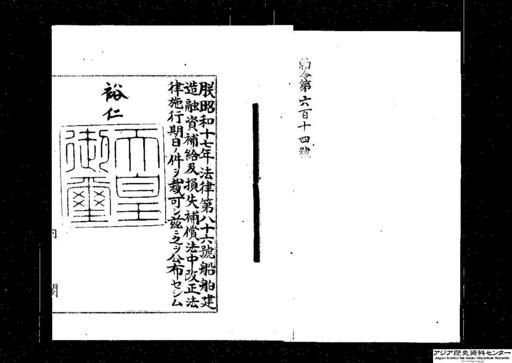 勅令第六百十四號
朕昭和十七年法律第八十六號船舶建
造融資補給及損失補償法中改正法
律施行期日ノ件ヲ裁可シ茲ニ之ヲ公布セシム
裕仁
天皇
御璽
内閣
アジア歴史資料センター
Japan Center for Asian Historical Records